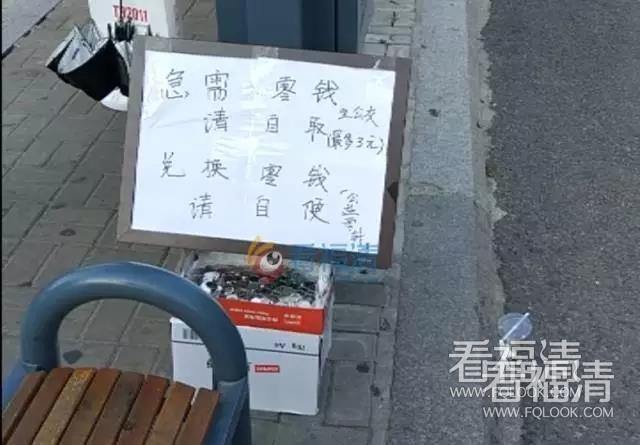 TB2011
急需零钱
请自取
坐公交
(最多3元)
兑换零钱
请自便
看福清
看福清
WWW.FQLOOK.COM
看福清
WWW.FQLOOK.COM